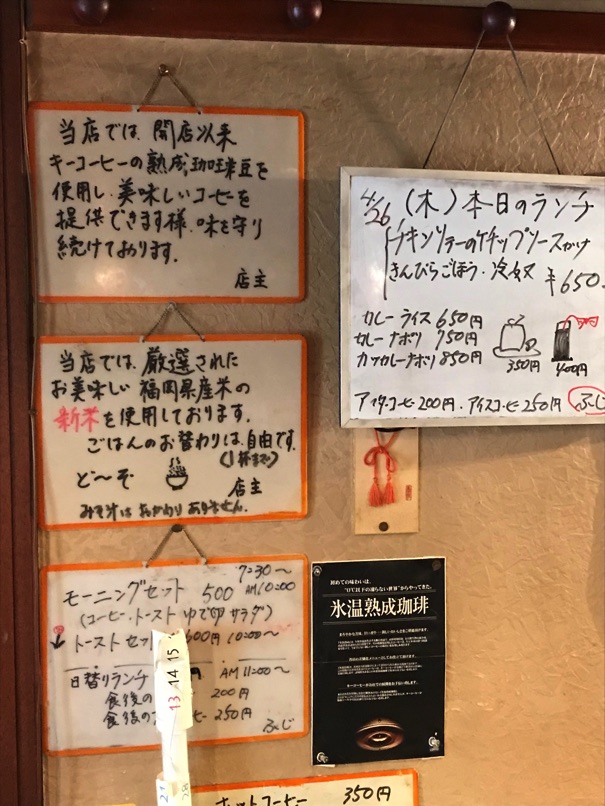 当店では、開店以来
キーコーヒーの熟成珈琲豆を
使用し、美味しいコーヒーを
提供できます様、味を守り
続けております。
店主
当店では、厳選された
お美味しい福岡県産米の
新米を使用しております。
ごはんのお替わりは、自由です。
(1杯まで)
ど〜ぞ
店主
みそ汁はおかわりありません。
7:30〜
モーニングセット 500 AM10:00
(コーヒー・トースト ゆで卵 サラダ)
トーストセット 600円 10:00〜
日替りランチ 円 AM11:00〜
食後の 200円
食後の ヒー 250円
ふじ
13 14 15
4/26 (木) 本日のランチ
チキンソテーのケチャップソースがけ
きんぴらごぼう・冷奴 ¥650-
カレーライス 650円
カレーナポリ 750円
カツカレーナポリ 850円
350円
400円
アフターコーヒー200円・アイスコーヒー250円
ふじ
初めての味わいは、
"0℃以下の凍らない世界"からやってきた。
氷温熟成珈琲
ホットコーヒー 350円